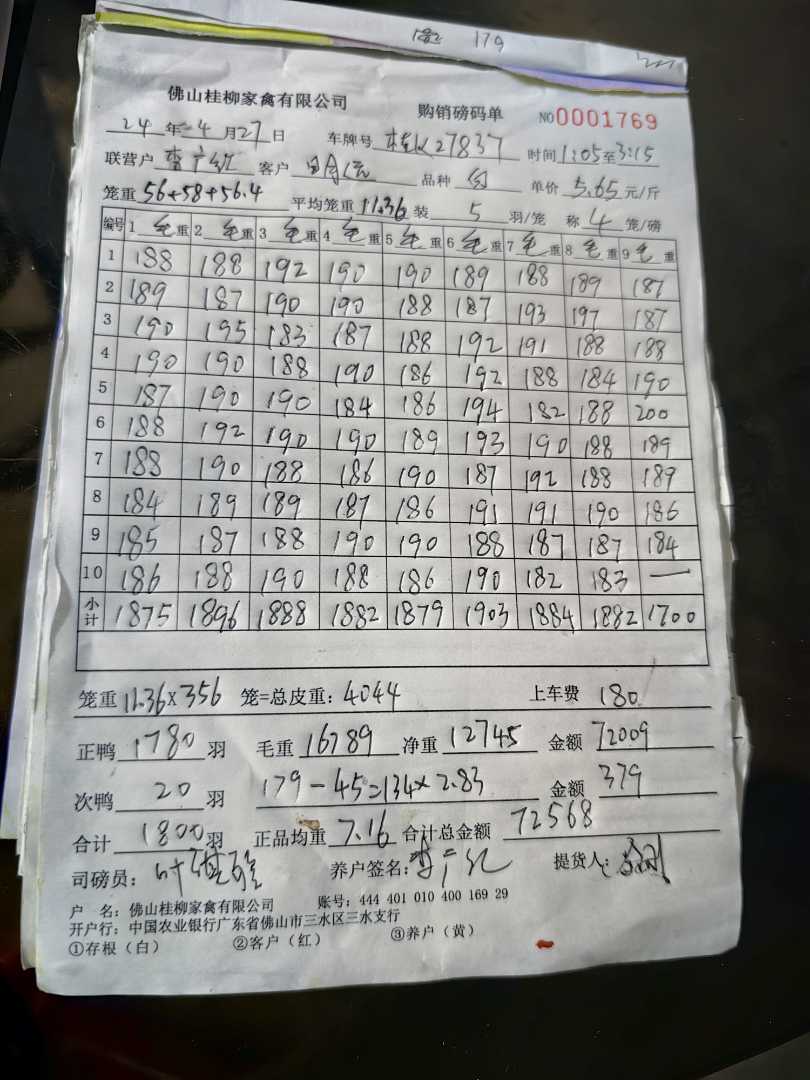 182 179
佛山桂柳家禽有限公司 购销磅码单 NO0001769
24年4月27日 车牌号 桂K27837 时间1:05至3:15
联营户 李广红 客户 品种 白 单价 5.65 元/斤
笼重 56+58+56.4 平均笼重 11.36 装 5 羽/笼 称 4 笼/磅
编号 1 毛重 2 毛重 3 毛重 4 毛重 5 毛重 6 毛重 7 毛重 8 毛重 9 毛重
1 188 188 192 190 190 189 188 189 187
2 189 187 190 190 188 187 193 197 187
3 190 195 183 187 188 192 191 188 188
4 190 190 188 190 186 192 188 184 190
5 187 190 190 184 186 194 182 188 200
6 188 192 190 190 189 193 190 188 189
7 188 190 188 186 190 187 192 188 189
8 184 189 189 187 186 191 191 190 186
9 185 187 188 190 190 188 187 187 184
10 186 188 190 188 186 190 182 183 —
小计 1875 1896 1888 1882 1879 1903 1884 1882 1700
笼重 11.36×356 笼=总皮重: 4044 上车费 180
正鸭 1780 羽 毛重 16789 净重 12745 金额 72009
次鸭 20 羽 179-45=134×2.83 金额 379
合计 1800 羽 正品均重 7.16 合计总金额 72568
司磅员: 叶 养户签名: 李广红 提货人:
户 名: 佛山桂柳家禽有限公司 账号: 444 401 010 400 169 29
开户行: 中国农业银行广东省佛山市三水区三水支行
①存根(白) ②客户(红) ③养户(黄)